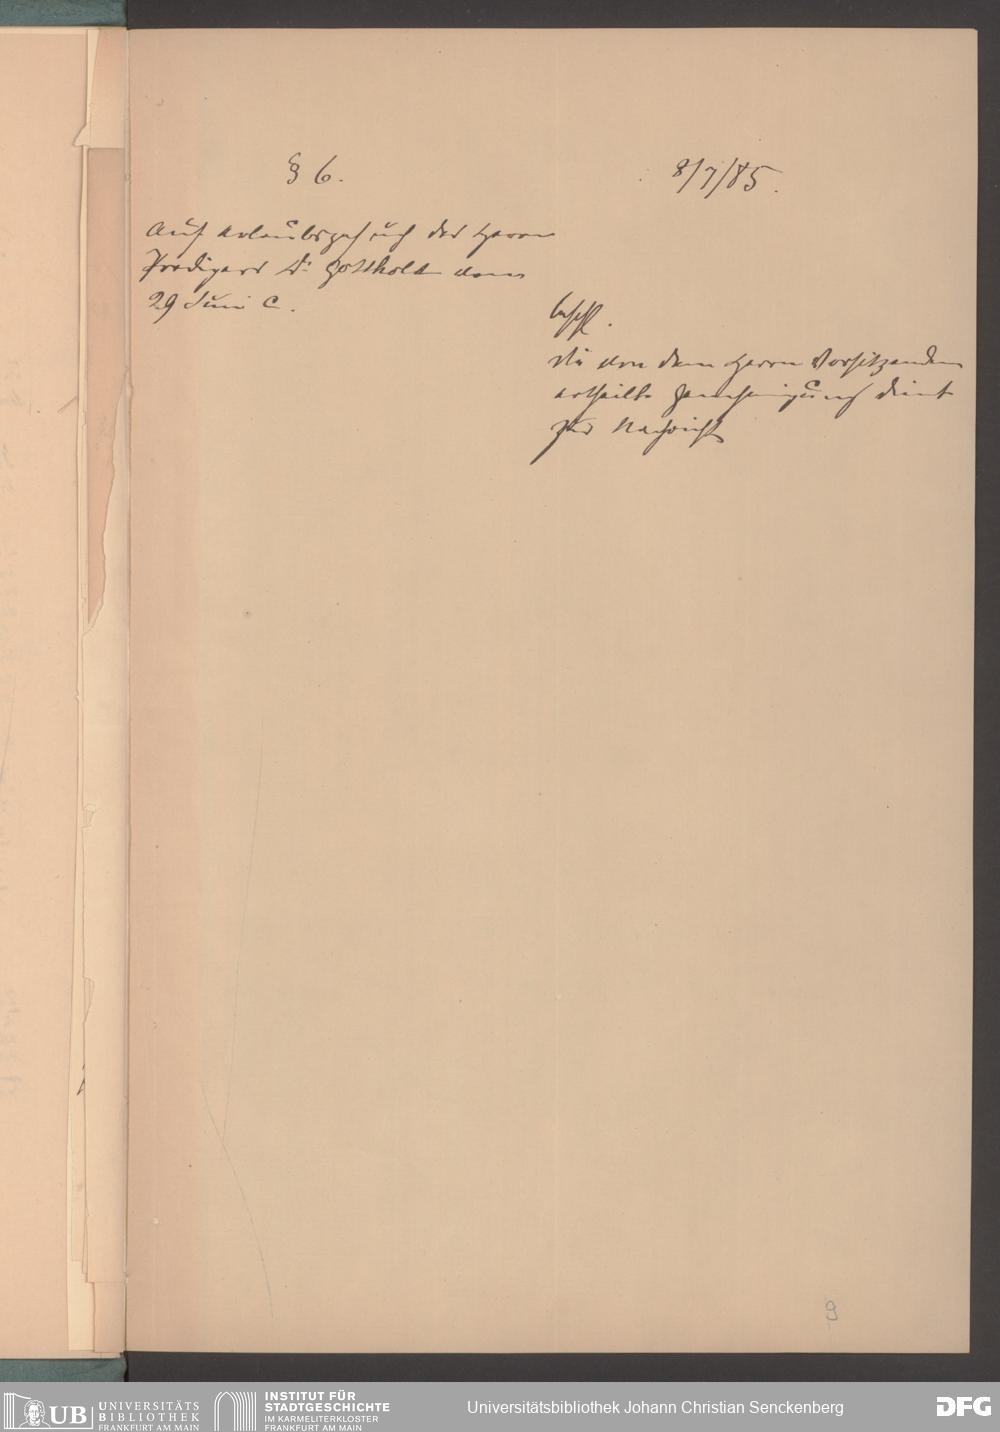 § 6.
8/7/85.
Auf Urlaubsgesuch des Herrn
Predigers Dr. Gotthold vom
29 Juni c.
beschl.
die von dem Herrn Vorsitzenden
ertheilte Genehmigung dient
zur Nachricht
9
UB UNIVERSITÄTS
BIBLIOTHEK
FRANKFURT AM MAIN
INSTITUT FÜR
STADTGESCHICHTE
IM KARMELITERKLOSTER
FRANKFURT AM MAIN
Universitätsbibliothek Johann Christian Senckenberg
DFG